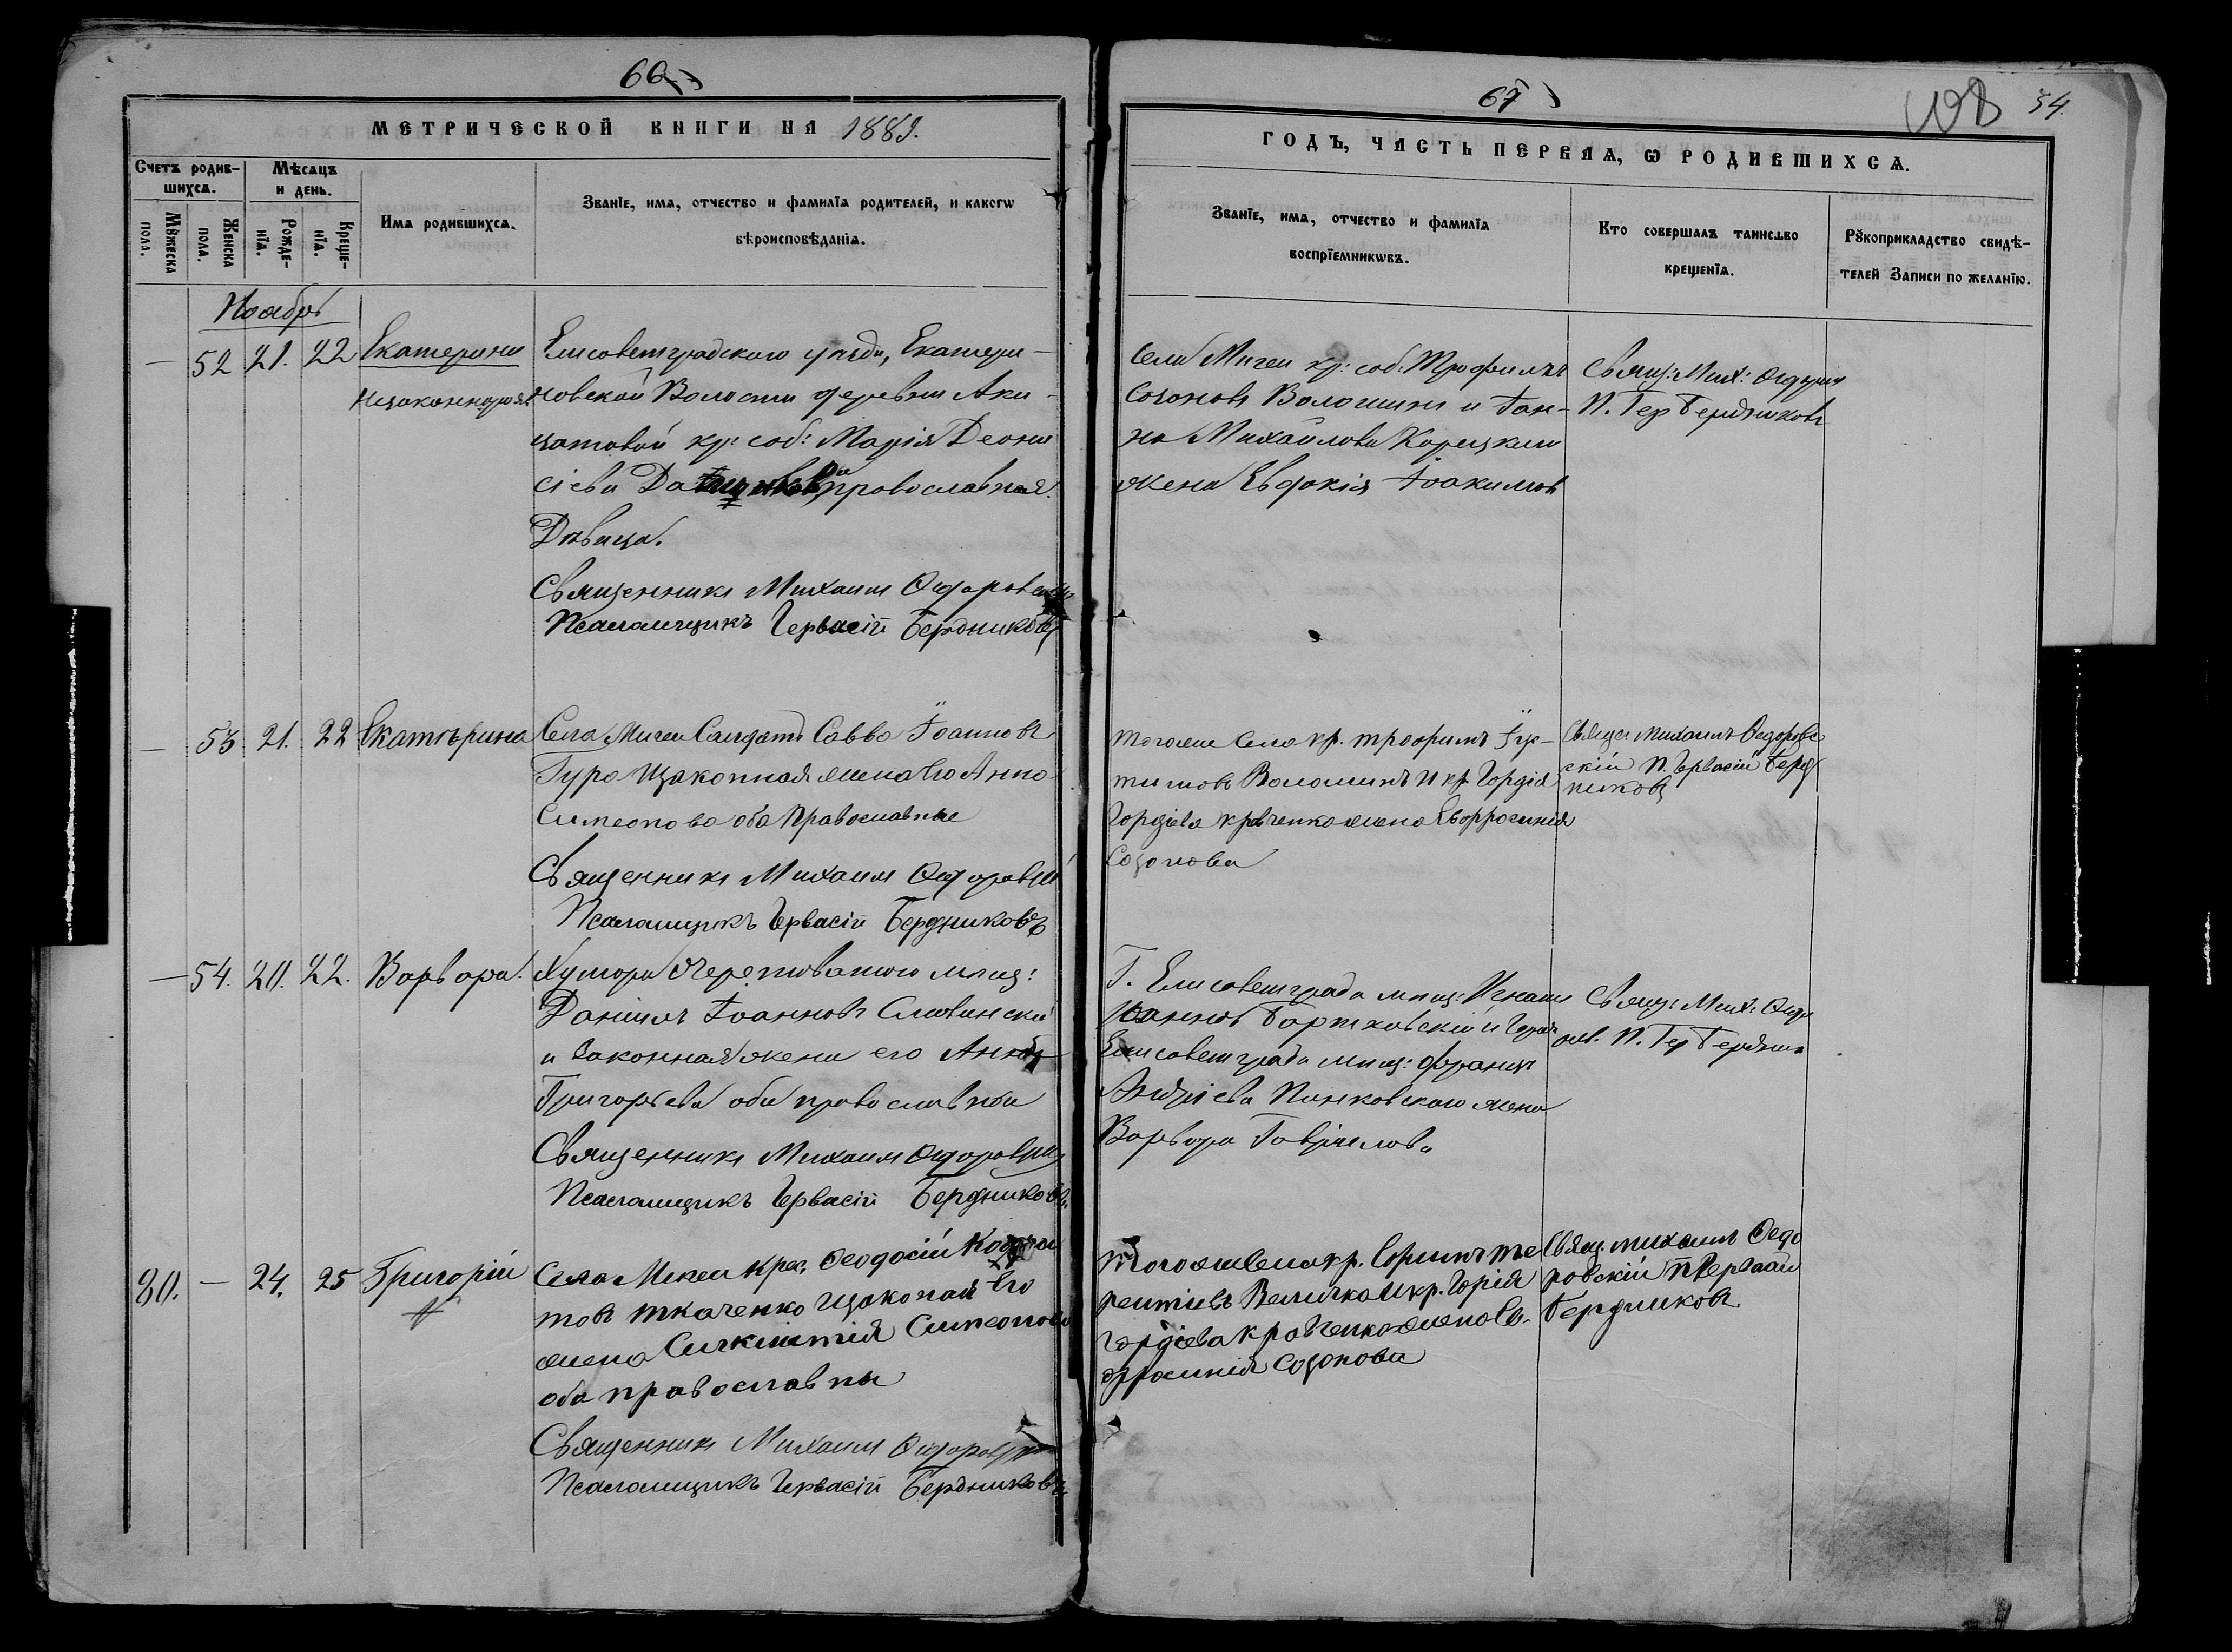 66
МЕТРИЧЕСКОЙ КНИГИ НА 1889.
Счетъ родив-
шихся.
Мѣсяцъ
и день.
Мꙋжеска
пола.
Женска
пола.
Рожде-
нїа.
Креще-
нїа.
Има родившихса.
Званїе, има, отчество и фамилїа родителей, и какогѡ
вѣроисповѣданїа.
Ноябрь
— 52 21. 22 Екатерина
Незаконнорож.
Елисаветградскаго уѣзда, Екатери-
новской Волости деревни Аки-
матовой кр: соб: Марія Деони
сіева православная.
Дѣвица.
Священникъ Михаилъ Ѳедоровскій
Псаломщикъ Гервасій Бердниковъ
— 53. 21. 22 Екатѣрина
Села Мигеи Салдатъ Савва Іоанновъ
Гура Изаконная жена Его Анна
Симеонова оба Православные
Священникъ Михаилъ Ѳедоровскій
Псаломщикъ Гервасій Бердниковъ
— 54. 20. 22. Варвара.
Хутора мѣщ:
Даніилъ Іоанновъ Славинскій
и Законная жена его Анна
Григорьева оба православные
Священникъ Михаилъ Ѳедоровскій
Псаломщикъ Гервасій Бердниковъ
80. — 24. 25 Григорій
Села Мигеи Крес. Ѳеодосій
товъ Ткаченко Изаконая Его
жена Симеонова
оба православны
Священникъ Михаилъ Ѳедоровскій
Псаломщикъ Гервасій Бердниковъ
67
108 54.
ГОДЪ, ЧАСТЬ ПЕРВАѦ, Ѡ РОДИВШИХСѦ.
Званїе, има, отчество и фамилїа
воспрїемникѡвъ.
Кто совершалъ таинство
крещенїа.
Рꙋкоприкладство свидѣ-
телей Записи по желанїю.
Села Мигеи кр: соб: Трофимъ
Созоновъ Волошинъ и Іоан-
на Михайлова Корецкаго
жена Евдокія Іоакимов
Свящ: Мих: Ѳедоров
П. Гер Бердниковъ
Тогоже Села кр. Трофимъ
Волошинъ И кр. Гордія
Гордіева Кравченка жена Евфросинія
Созонова
Свящн Михаилъ Ѳедоров
скій П. Гервасій Берд
никовъ
Г. Елисаветграда мѣщ: Игнатій
Іоанновъ и Города
Елисаветграда мѣщ: Францъ
Андріева Панковскаго жена
Варвара Гавриілова
Свящ: Мих: Ѳедо
П. Гер Бердник
Тогоже Села кр.
рентіевъ Величко И кр. Гордія
Гордіева Кравченка жена Ев-
фросинія Созонова
Свящ. Михаилъ Ѳедо
ровскій П Гервасій
Бердниковъ.